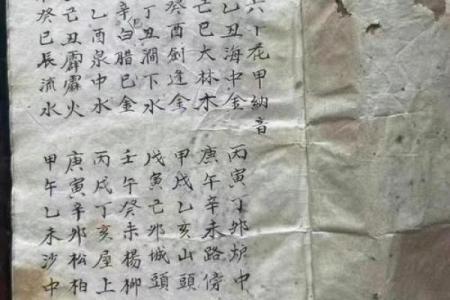 六十花甲納音
乙丑海中金丙寅丁卯炉中
己巳大林木庚午辛未路傍
癸酉劍逢金甲戌乙亥山頭
丁丑澗下水戊寅己卯城頭
辛白腊巳金壬午癸未楊柳
乙酉泉中水丙戌丁亥屋上
己丑霹靂火庚寅辛卯松柏
癸巳辰流水甲午乙未沙中